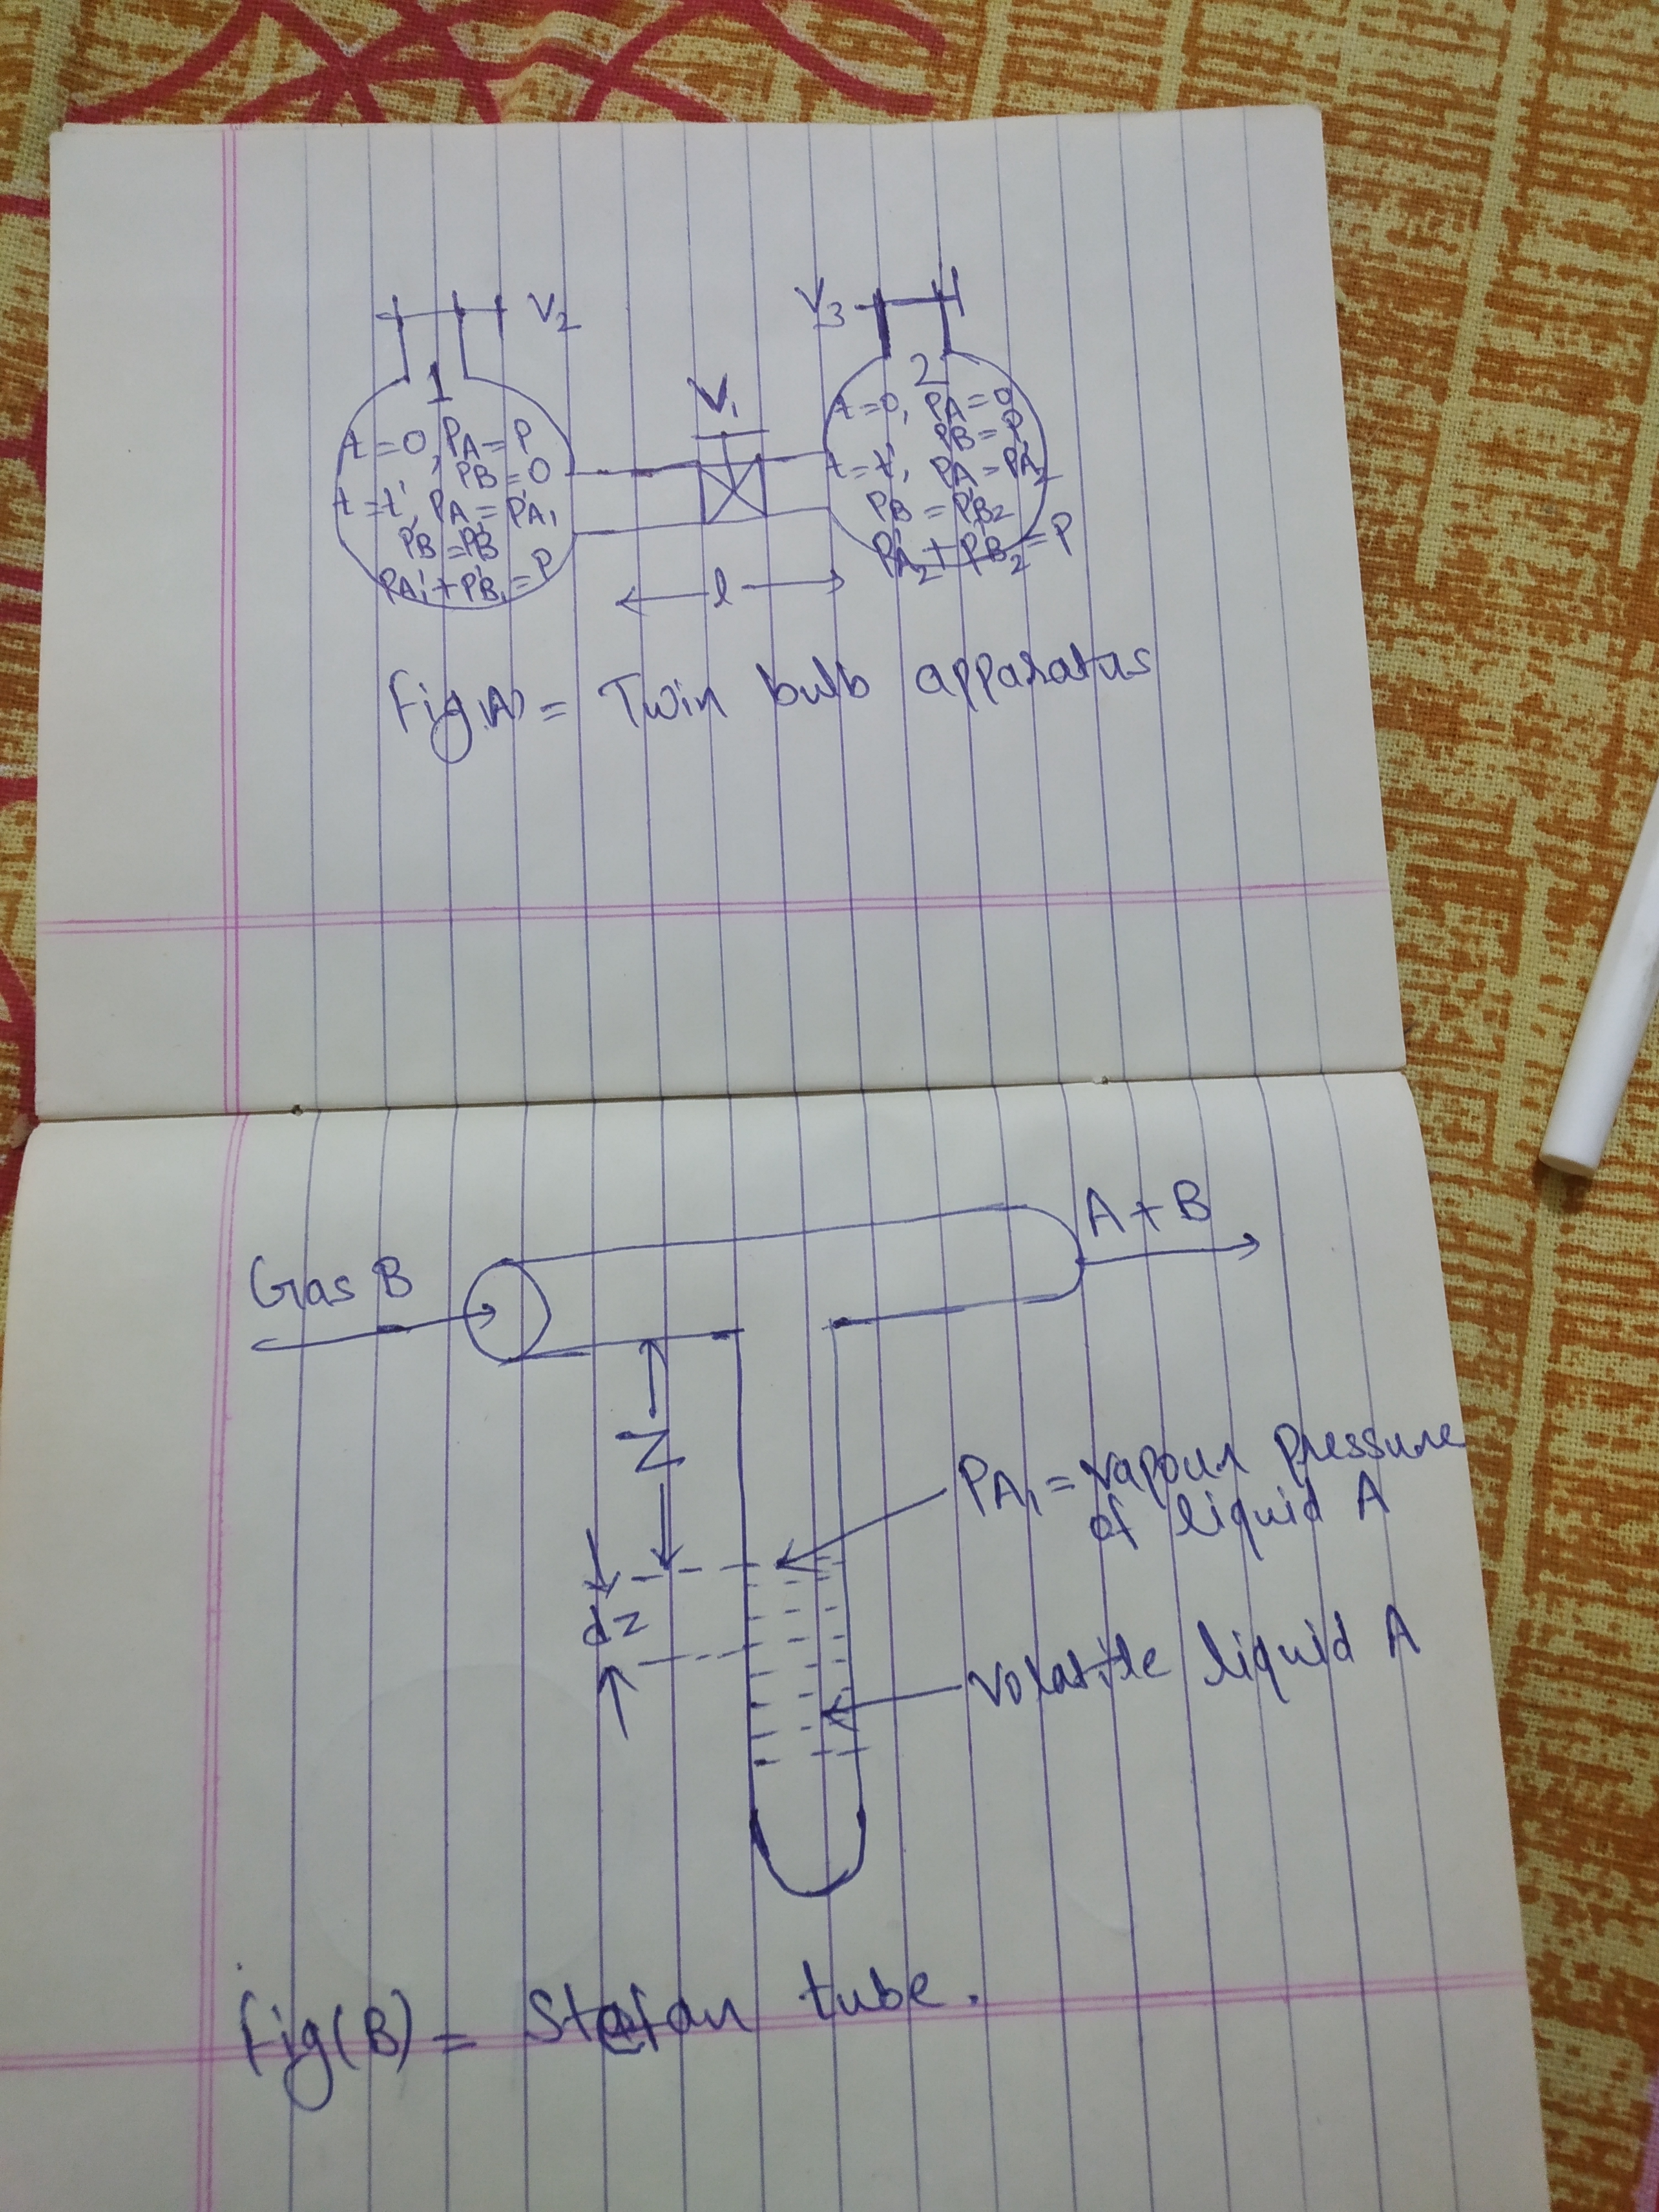 V₂
V₃
V₁
1
t=0, PA=P
PB=0
t=t', PA=P'A₁
PB=P'B
P'A₁+P'B₁=P
2
t=0, PA=0
PB=P
t=t', PA=P'A₂
PB=P'B₂
P'A₂+P'B₂=P
l
Fig(A)= Twin bulb apparatus
A+B
Gas B
Z
PA₁=vapour pressure
of liquid A
dz
Volatile liquid A
Fig(B)= Stefan tube.